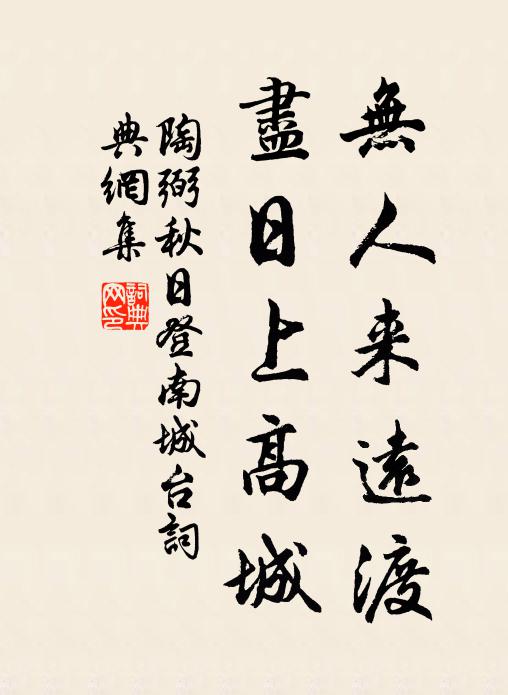 無人来遠渡
盡日上高城
陶弼秋日登南城台詞
典網集
詞典
网印